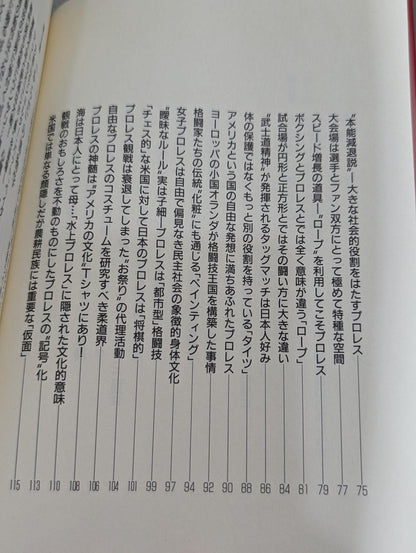 “本能減退説”—大きな社会的役割をはたすプロレス 75
大会場は選手とファン双方にとって極めて特種な空間 77
スピード増長の道具—“ロープ”を利用してこそプロレス 79
ボクシングとプロレスとでは全く意味が違う「ロープ」 81
試合場が円形と正方形とではその闘い方に大きな違い 84
“武士道精神”が発揮されるタッグマッチは日本人好み 86
体の保護ではなくもっと別の役割を持っている「タイツ」 88
アメリカという国の自由な発想に満ちあふれたプロレス 90
ヨーロッパの小国オランダが格闘技王国を構築した事情 92
格闘家たちの伝統“化粧”にも通じる「ペインティング」 94
女子プロレスは自由で偏見なき民主社会の象徴的身体文化 97
“曖昧なルール”実は子細—プロレスは「都市型」格闘技 99
「チェス的」な米国に対して日本のプロレスは「将棋的」 101
プロレス観戦は衰退してしまった“お祭り”の代理活動 104
自由なプロレスのコスチュームを研究すべき柔道界 106
プロレスの神髄は“アメリカの文化”Tシャツにあり! 108
海は日本人にとって母…“水上プロレス”に隠された文化的意味 110
観戦のおもしろさを不動のものにしたプロレスの“記号”化 113
米国では単なる顔隠しだが農耕民族には重要な「仮面」 115